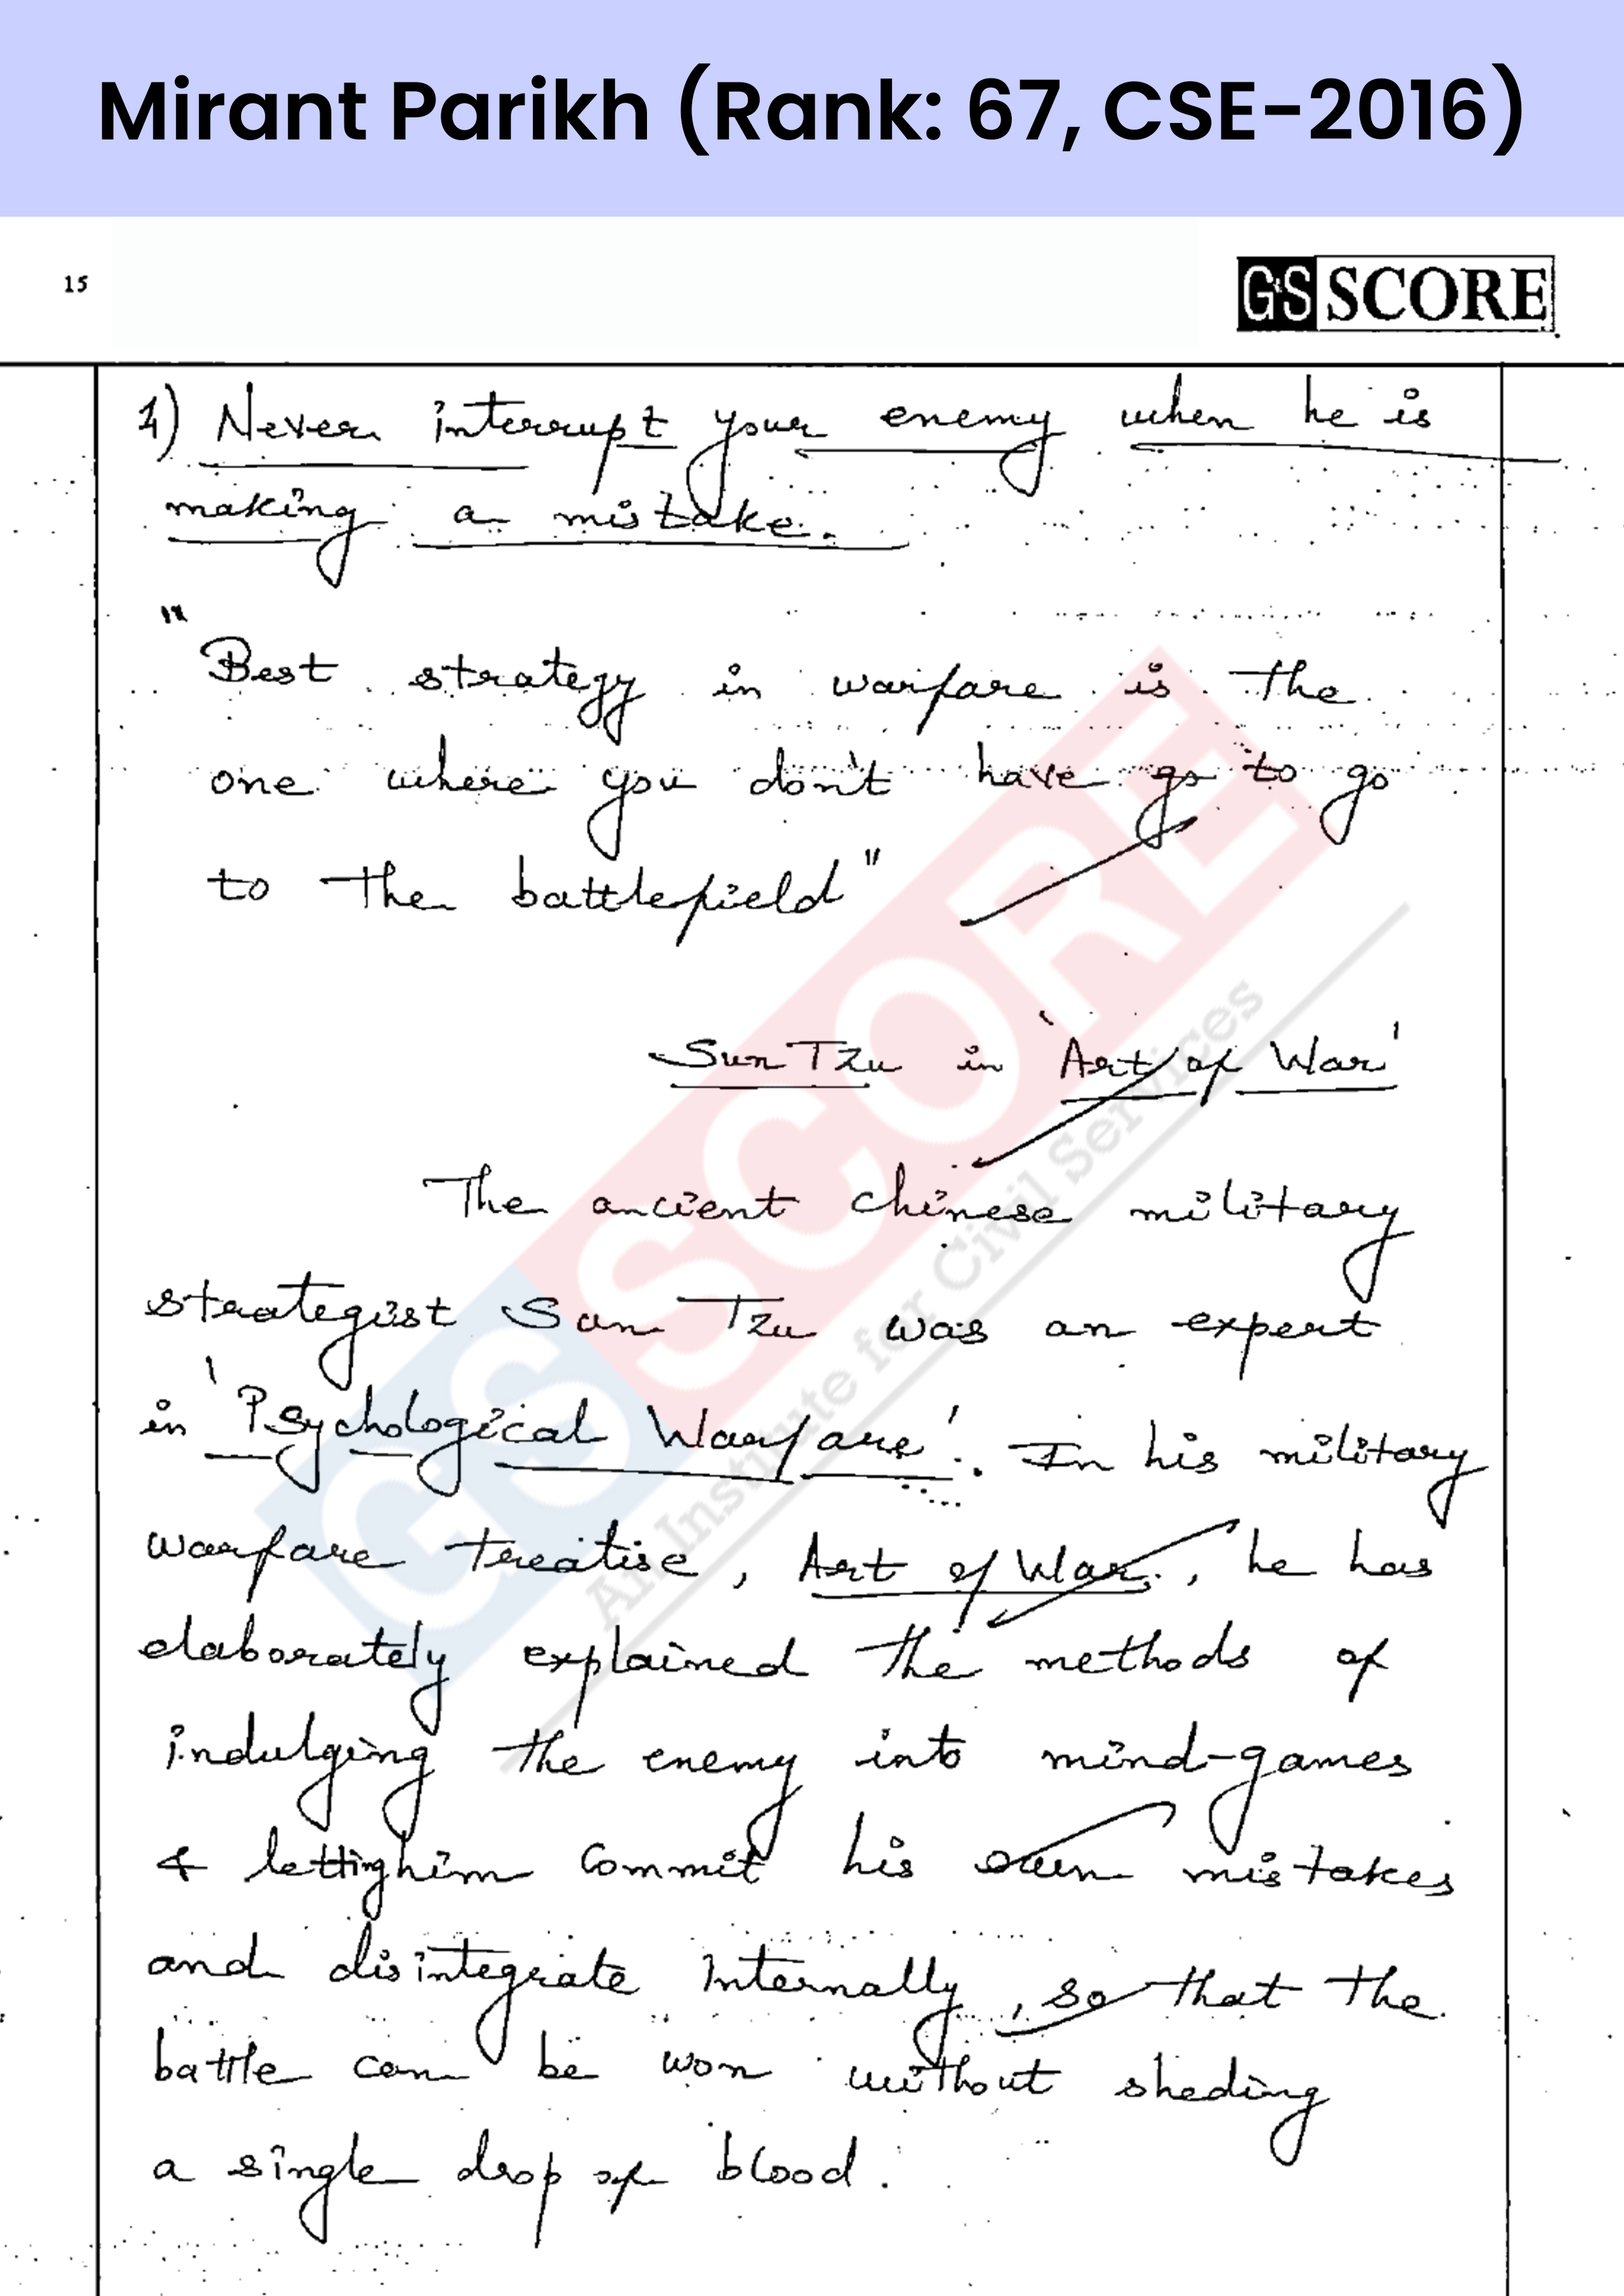 Mirant Parikh (Rank: 67, CSE-2016)
15
GS SCORE
1) Never interrupt your enemy when he is
making a mistake.
"Best strategy in warfare is the
one where you don't have go to go
to the battlefield"
Sun Tzu in 'Art of War'
The ancient chinese military
strategist Sun Tzu was an expert
in 'Psychological Warfare'. In his military
warfare treatise, Art of War, he has
elaborately explained the methods of
indulging the enemy into mind-games
& letting him commit his own mistakes
and disintegrate internally, so that the
battle can be won without sheding
a single drop of blood.
GS SCORE
An Institute for Civil Services